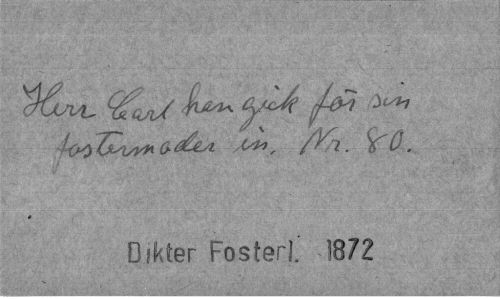 Herr Carl han gick för sin
fostermoder in. Nr. 80.
Dikter Fosterl. 1872